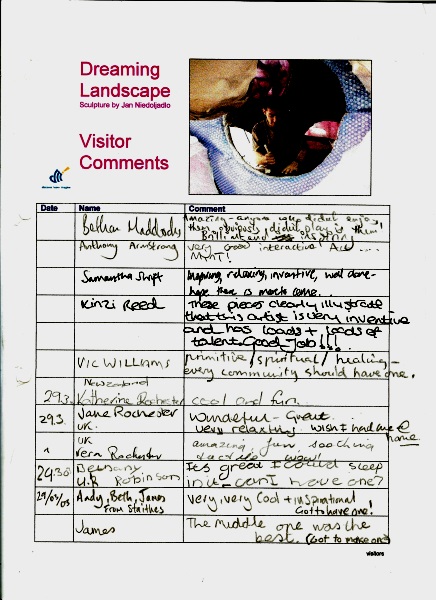 Dreaming
Landscape
Sculpture by Jan Niedojadlo
Visitor
Comments
Date Name Comment
Bethan Maddocks Amazing - anyone who didn't enjoy
them obviously didn't play in them
Brilliant and inspiring
Anthony Armstrong very good interactive Act ....
MNT!
Samantha Swift Inspiring, relaxing, inventive, well done -
hope there is more to come.
Kinzi Reed These pieces clearly illustrate
that this artist is very inventive
and has loads + loads of
talent Good Job!!!
VIC WILLIAMS primitive/spiritual/healing -
every community should have one.
New Zealand
29.3 Katherine Rochester cool and fun.
29.3. Jane Rochester Wonderful - Great.
UK. very relaxing. Wish I had one @
home
UK amazing, fun soothing
" Vera Rochester wow!
Bethany Its great I could sleep
U.K Robinson in it - can I have one?
29/03/05 Andy, Beth, James very, very cool + inspirational
From Staithes Got to have one!
James The Middle one was the
best. (Got to make one)
visitors